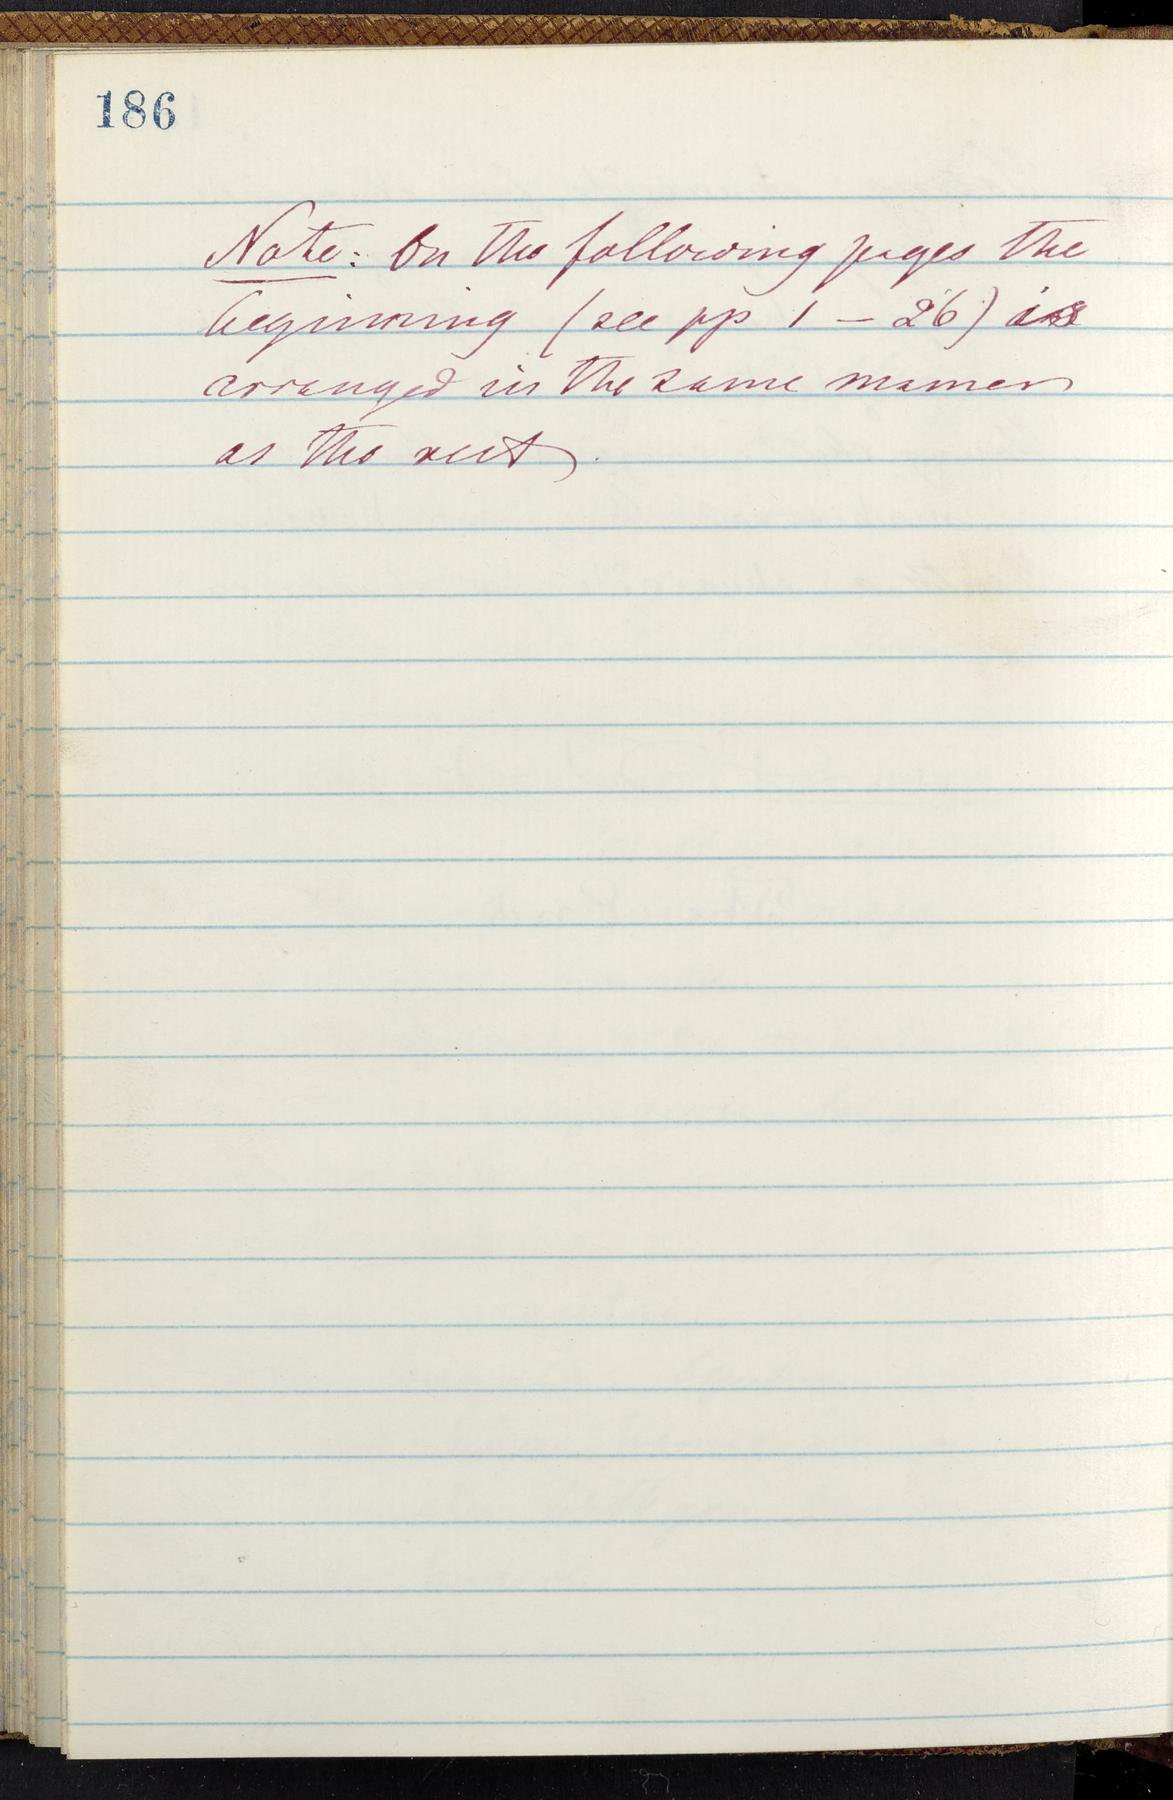 186
Note: On the following pages the
beginning (see pp 1 – 26) is
arranged in the same manner
as the rest.